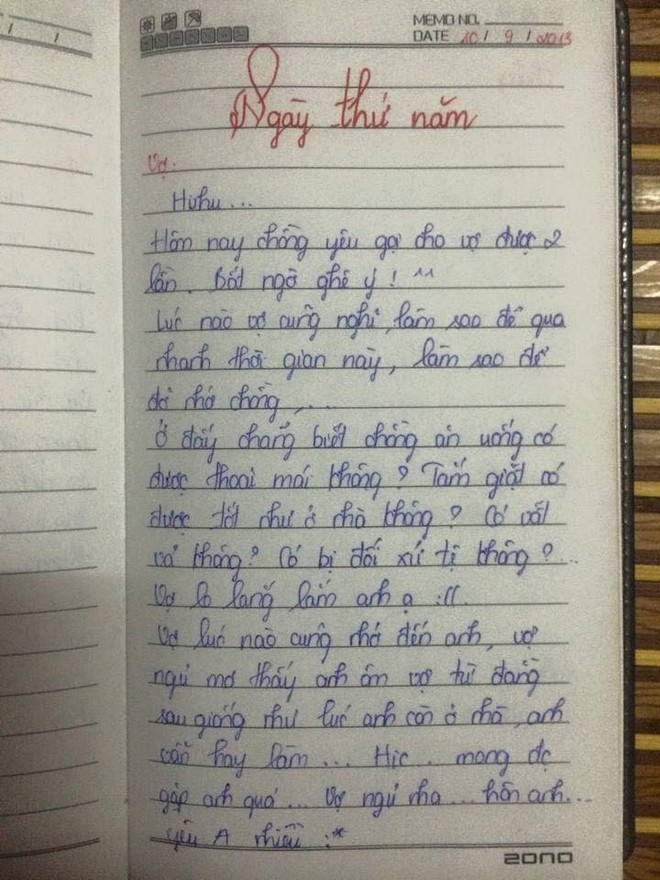 MEMO NO.
DATE 10 / 9 / 2013
Ngày thứ năm
Vợ.
Huhu...
Hôm nay chồng yêu gọi cho vợ được 2
lần. Bất ngờ ghê ý! ^^
Lúc nào vợ cũng nghĩ, làm sao để qua
nhanh thời gian này, làm sao để
đỡ nhớ chồng,...
Ở đấy chẳng biết chồng ăn uống có
được thoải mái không? Tắm giặt có
được tốt như ở nhà không? Có vất
vả không? Có bị đối xử tệ không?...
Vợ lo lắng lắm anh ạ :((
Vợ lúc nào cũng nhớ đến anh, vợ
ngủ mơ thấy anh ôm vợ từ đằng
sau giống như lúc anh còn ở nhà, anh
vẫn hay làm... Hic. mong đc
gặp anh quá... Vợ ngủ nha... hôn anh...
yêu A nhiều :*
2ONO